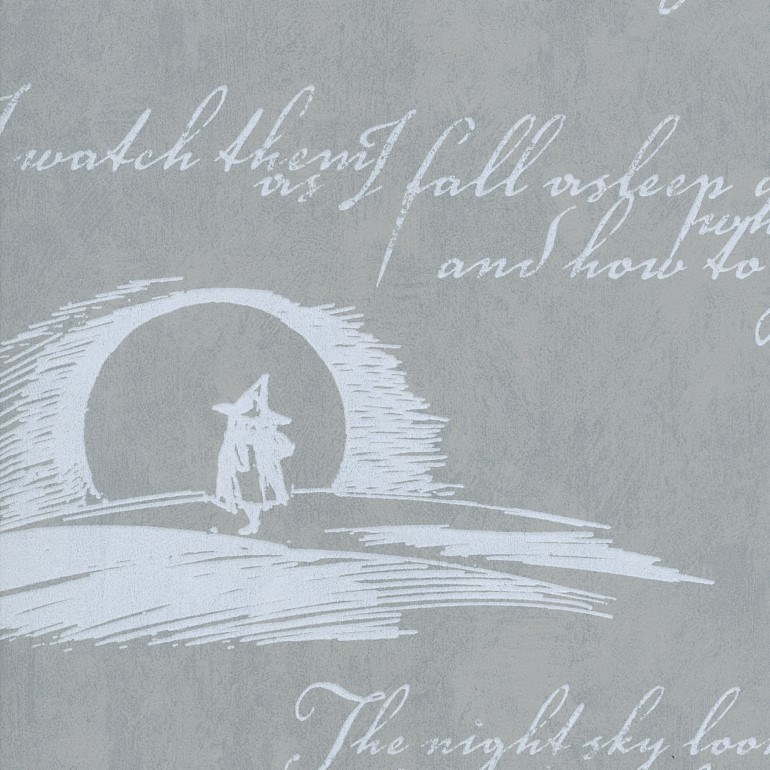 I watch them
as I fall asleep
and how to
The night sky